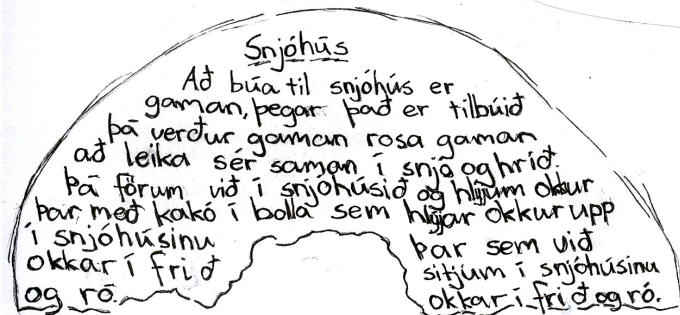 Snjóhús
Að búa til snjóhús er
gaman, þegar það er tilbúið
þá verður gaman rosa gaman
að leika sér saman í snjó og hríð.
Þá förum við í snjóhúsið og hlýjum okkur
þar með kakó í bolla sem hlýjar okkur upp
í snjóhúsinu
okkar í frið
og ró.
þar sem við
sitjum í snjóhúsinu
okkar í frið og ró.